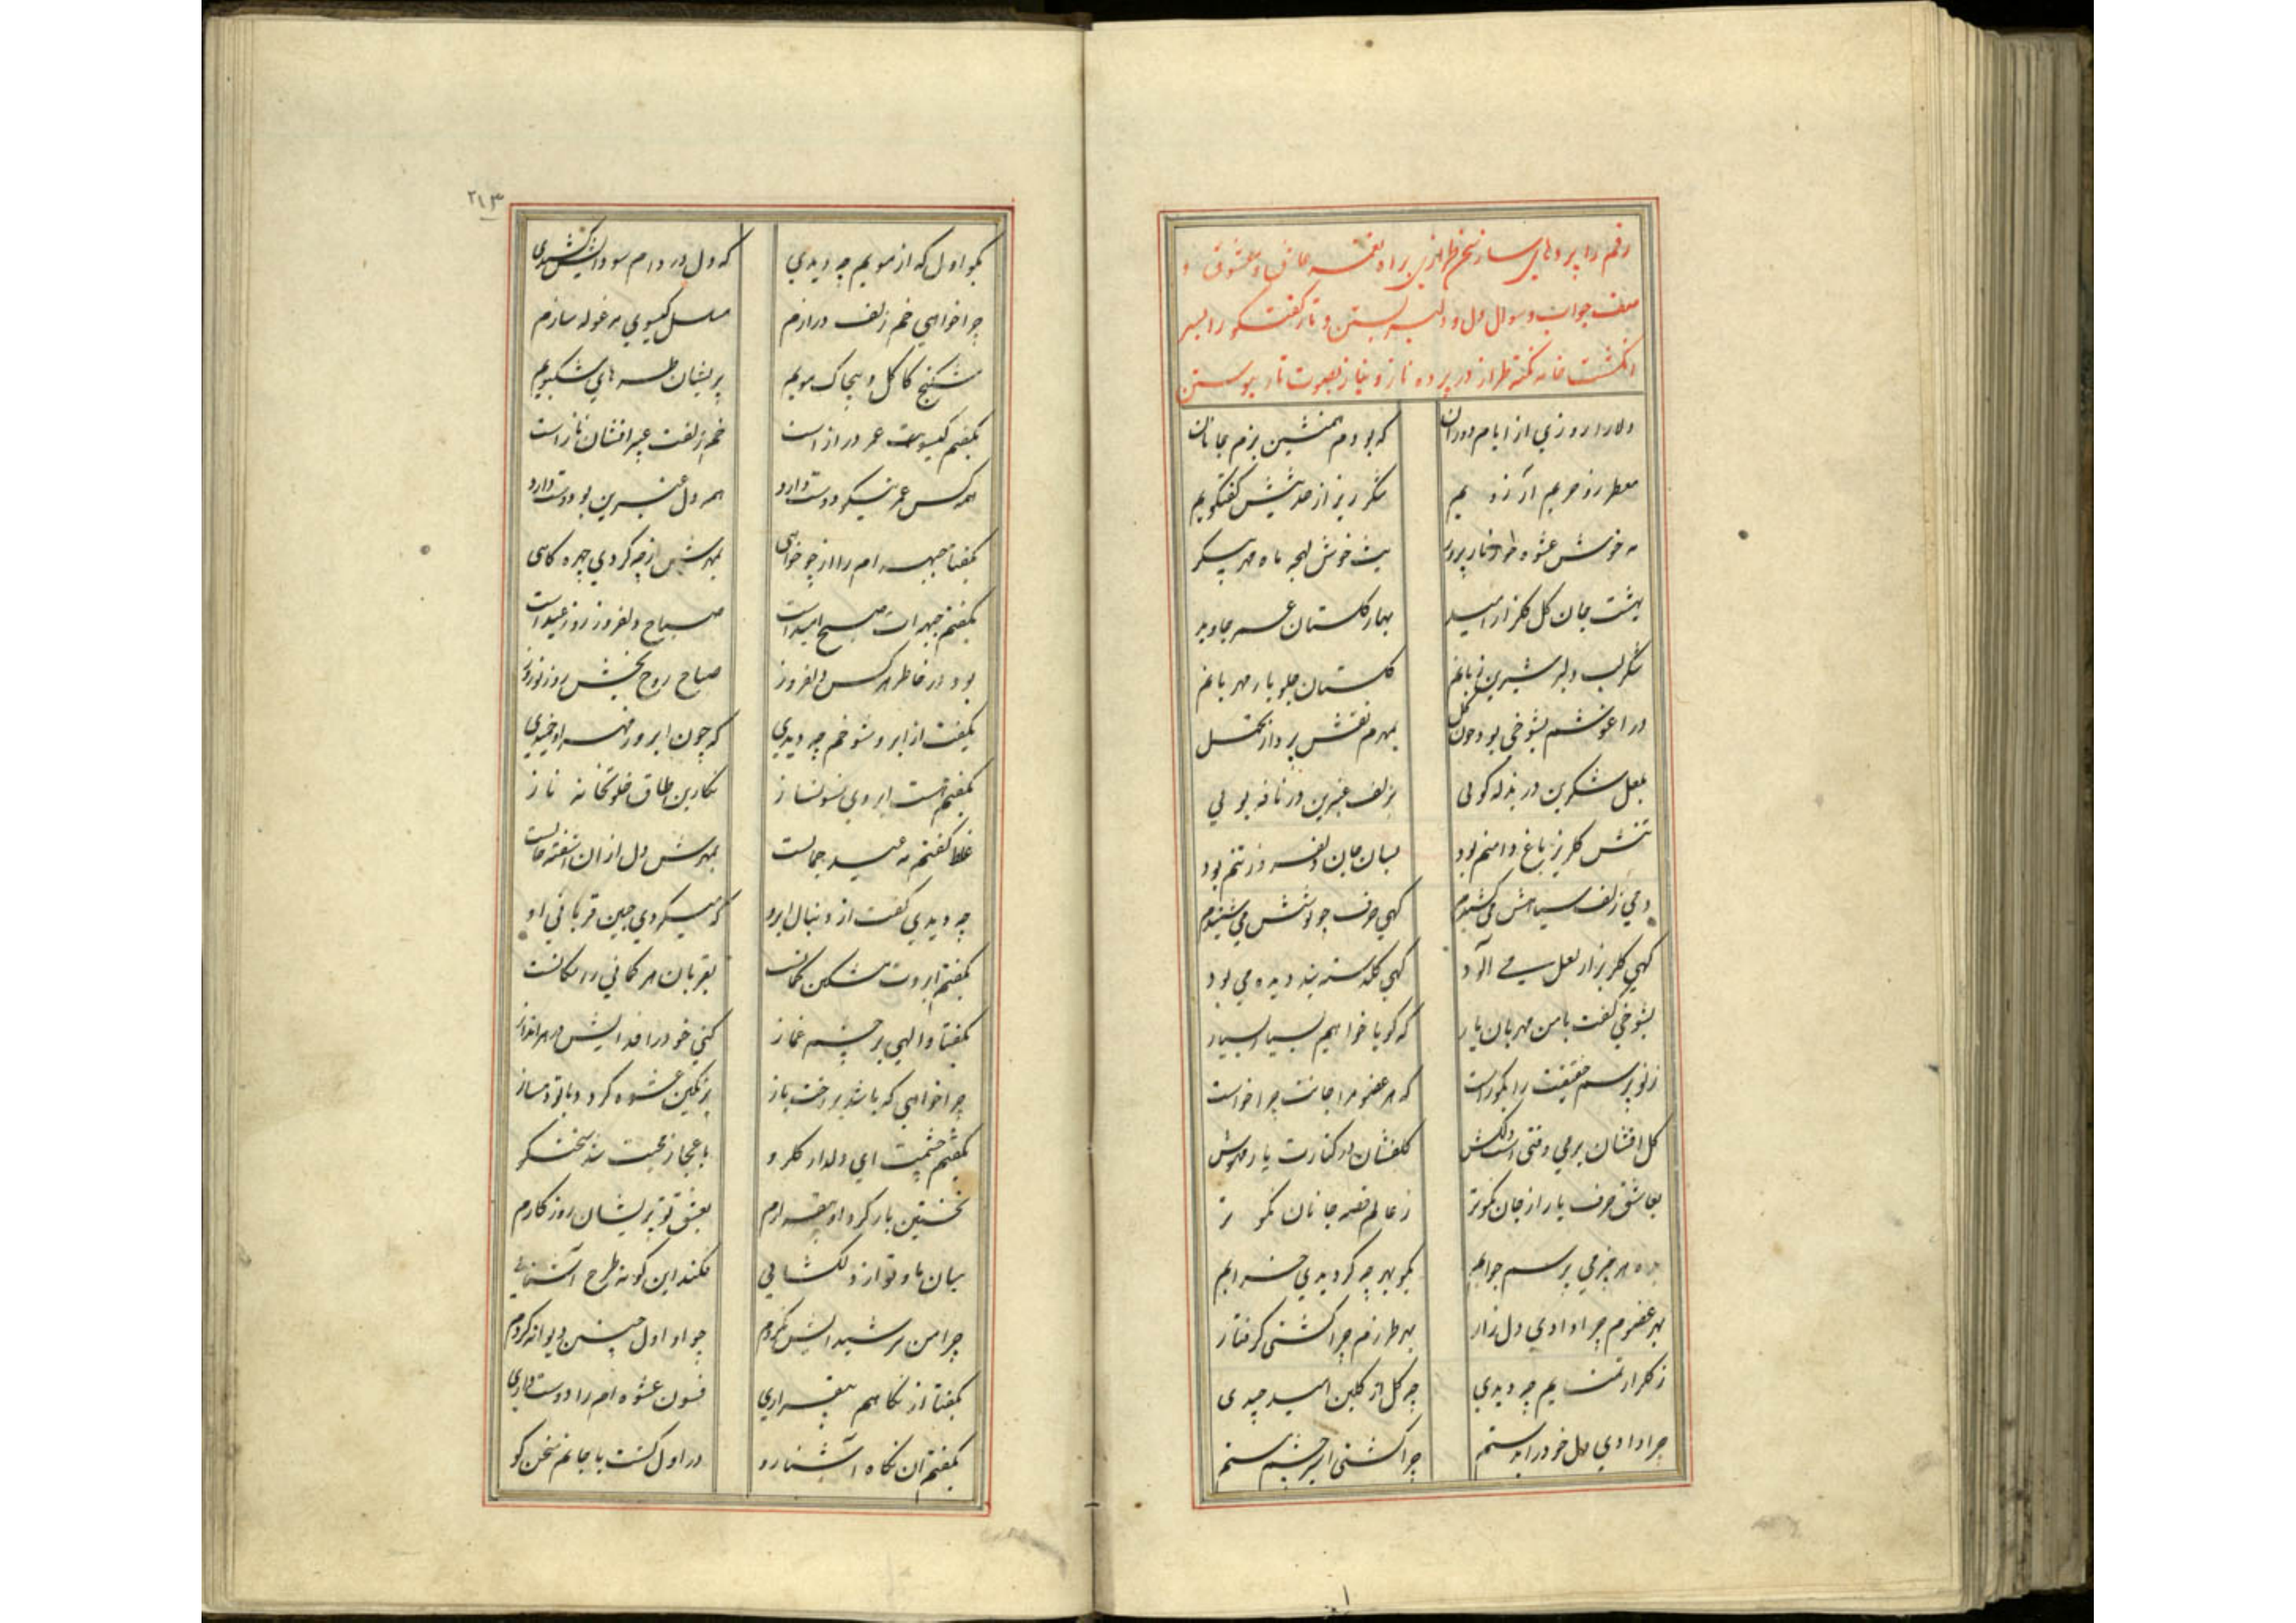 رقم را پرده‌های ساز سخن طرازی بر او نغمه عاشق و معشوق و
صف جواب و سوال دل و دلبر بستن و تار گفتگو را بسر
انگشت خامه نکته طراز در پرده ناز و نیاز بصوت تار پیوستن
دلارا روزی از ایام دوران که بودم همنشین بزم جانان
معطر زو حریم آرزویم شکر ریز از حدیثش گفتگویم
مه خوش عشوه طراز ناز پرور بت خوش لهجه ماه مهر پیکر
بهشت جان گل گلزار امید بهار گلستان عمر جاوید
شکر لب دلبر شیرین زبانم گلستان جلو یار مهربانم
در اغوشم بشوخی بود چون گل بهر دم نقش پرداز تجمل
بلعل شکرین در بذله گوئی بزلف عنبرین در نافه بوئی
تنش گلریز باغ دامنم بود بسان جان دلفروز تنم بود
دمی زلف سیاهش می کشیدم گهی حرف چو نوشش می شنیدم
گهی گلریز از لعل می آلود گهی گلدسته بند دیده می بود
بشوخی گفت با من مهربان یار که گویا خواهیم بسیار بسیار
ز تو پرسم حقیقت را بگو راست که هر عضو مرا جانت چرا خواست
گل افشان برمی وقتی است دلکش گلفشان در کنارت یار مهوش
بعاشق حرف یار از جان نکوتر ز عالم قصه جانان نکوتر
بده هر چیز می پرسم جوابم بگو بهر چه گردیدی خرابم
بهر عضوم چرا دادی دل زار بهر طرزم چرا گشتی گرفتار
ز گلزار تمنایم چه دیدی چه گل از گلبن امید چیدی
چرا دادی دل خود را بدستم چرا گشتی اسیر چشم مستم
۲۱۳
بگو اول که از مویم چه دیدی که دل در دام سودایش کشیدی
چرا خواهی خم زلف درازم مسلسل گیسوی مرغوله سازم
شکنج کاکل و پیچاک مویم پریشان طره های مشکبویم
بگفتم گیسویت عمر دراز است خم زلفت عبیر افشان ناز است
همه کس عمر نیکو دوست دارد همه دل عنبرین بو دوست دارد
بگفتا جبهه ام را از چه خواهی بمهرش از چه کردی چهره کاهی
بگفتم جبهه ات صبح امید است صباح دلفروز روز عید است
بود در خاطر هر کس دلفروز صباح روح بخش روز نوروز
بگفت از ابرو شوخم چه دیدی که چون ابرو ز قهر او خمیدی
بگفتم هست ابروی فسونساز نگارین طاق خلوتخانه ناز
غلط گفتم مه عید جمالست بمهرش دل ازان اشفته حالست
چه دیدی گفت از دنبال ابرو که میکردی چنین قربانی او
بگفتم ابروت مشکین کمانست بقربان هر کمانی را مکانست
بگفتا والهی بر چشم غماز کنی خود را فدایش
چرا خواهی که باشد بر رخت باز برنگین عشوه گردد با تو دمساز
بگفتم چشمت ای دلدار گلرو باعجاز محبت شد سخنگو
نخستین بار کرد او بیقرارم بعشق تو پریشان روزگارم
میان ما و تو از دلگشایی فکند این گونه طرح آشنایی
چرا من سر شیدایش نگردم چو او اول چنین دیوانه کردم
بگفتا از نگاهم بیقراری فسون عشوه ام را دوست داری
بگفتم آن نگاه آشنا رو در اول گشت با جانم سخن گو